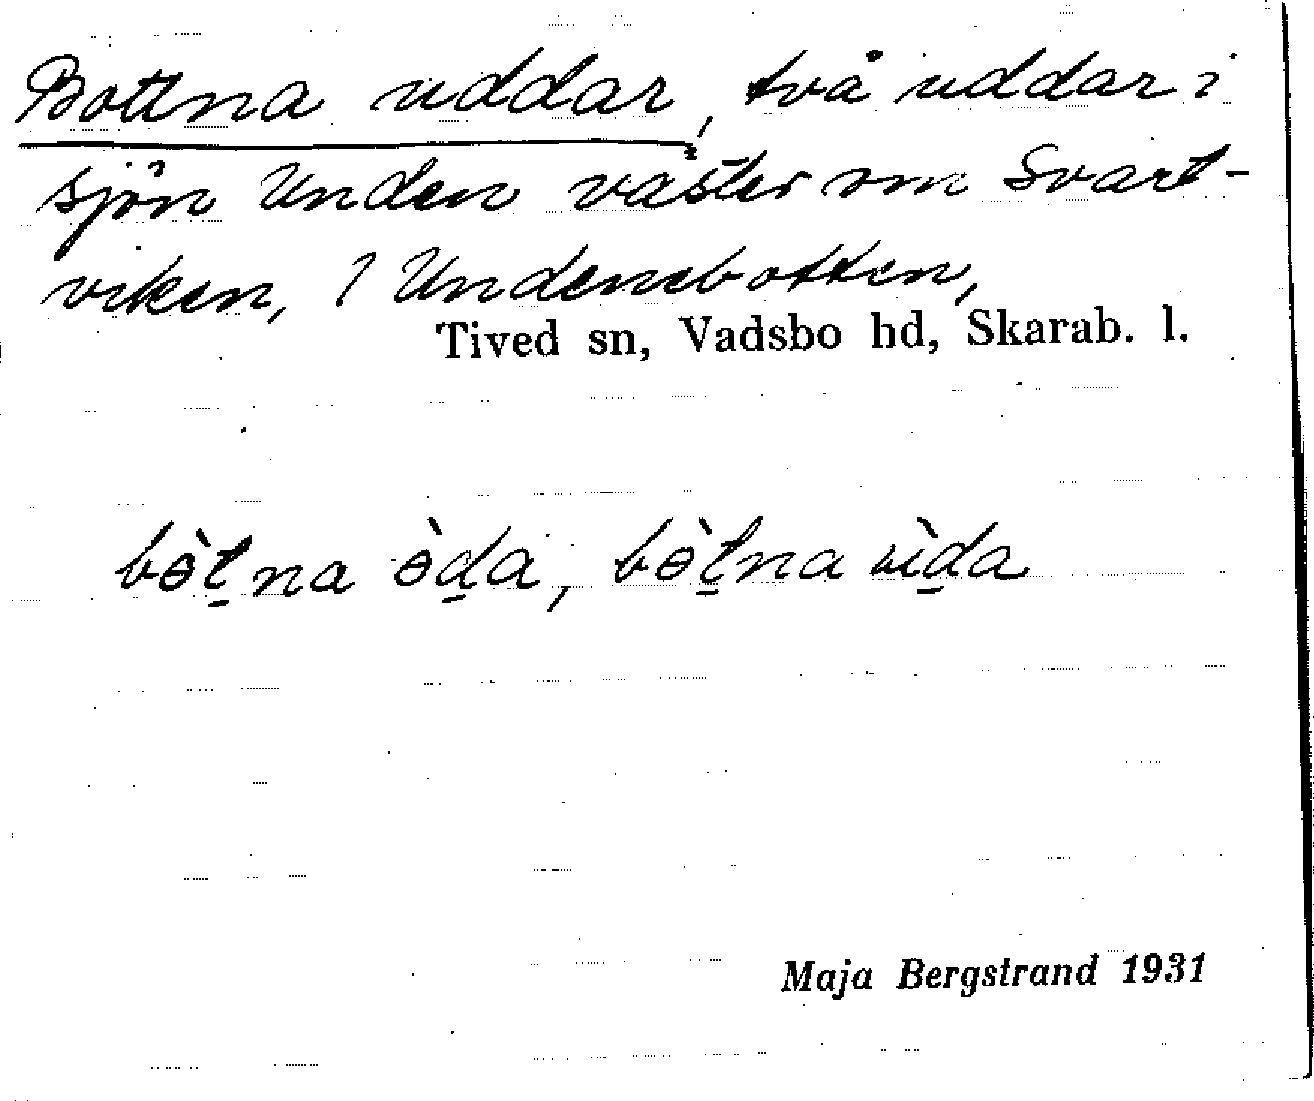 Bottna uddar, två uddar i
sjön Unden väster om Svart-
viken, i Undensbotten,
Tived sn, Vadsbo hd, Skarab. l.
bɵ̀t̠na ɵ̀d̠a, bɵ̀t̠na ùd̠a
Maja Bergstrand 1931